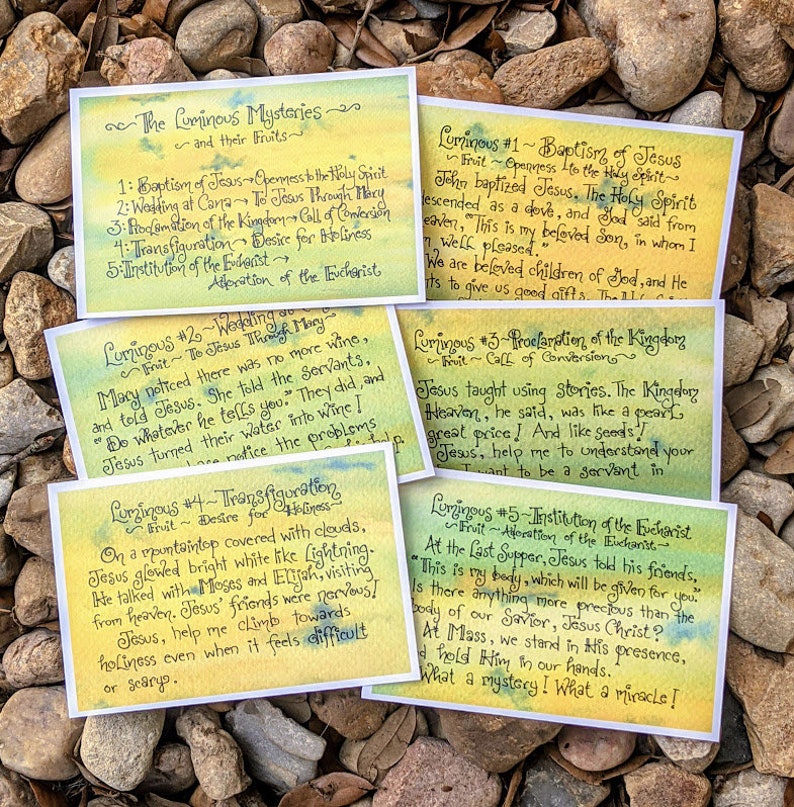 The Luminous Mysteries
~ and their Fruits ~
1: Baptism of Jesus → Openness to the Holy Spirit
2: Wedding at Cana → To Jesus Through Mary
3: Proclamation of the Kingdom → Call of Conversion
4: Transfiguration → Desire for Holiness
5: Institution of the Eucharist →
Adoration of the Eucharist
Luminous #1 ~ Baptism of Jesus
~ Fruit ~ Openness to the Holy Spirit ~
John baptized Jesus. The Holy Spirit
descended as a dove, and God said from
eaven, "This is my beloved Son, in whom I
m well pleased."
We are beloved children of God, and He
ts to give us good gifts. The
Luminous #2 ~ Wedding at
~ Fruit ~ To Jesus Through Mary ~
Mary noticed there was no more wine,
and told Jesus. She told the servants,
"Do whatever he tells you." They did, and
Jesus turned their water into wine!
notice the problems
Luminous #3 ~ Proclamation of the Kingdom
~ Fruit ~ Call of Conversion ~
Jesus taught using stories. The Kingdom
Heaven, he said, was like a pearl
great price! And like seeds!
Jesus, help me to understand your
I want to be a servant in
Luminous #4 ~ Transfiguration
~ Fruit ~ Desire for Holiness ~
On a mountaintop covered with clouds,
Jesus glowed bright white like lightning.
He talked with Moses and Elijah, visiting
from heaven. Jesus' friends were nervous!
Jesus, help me climb towards
holiness even when it feels difficult
or scary.
Luminous #5 ~ Institution of the Eucharist
~ Fruit ~ Adoration of the Eucharist ~
At the Last Supper, Jesus told his friends,
"This is my body, which will be given for you."
Is there anything more precious than the
body of our Savior, Jesus Christ?
At Mass, we stand in His presence,
d hold Him in our hands.
What a mystery! What a miracle!